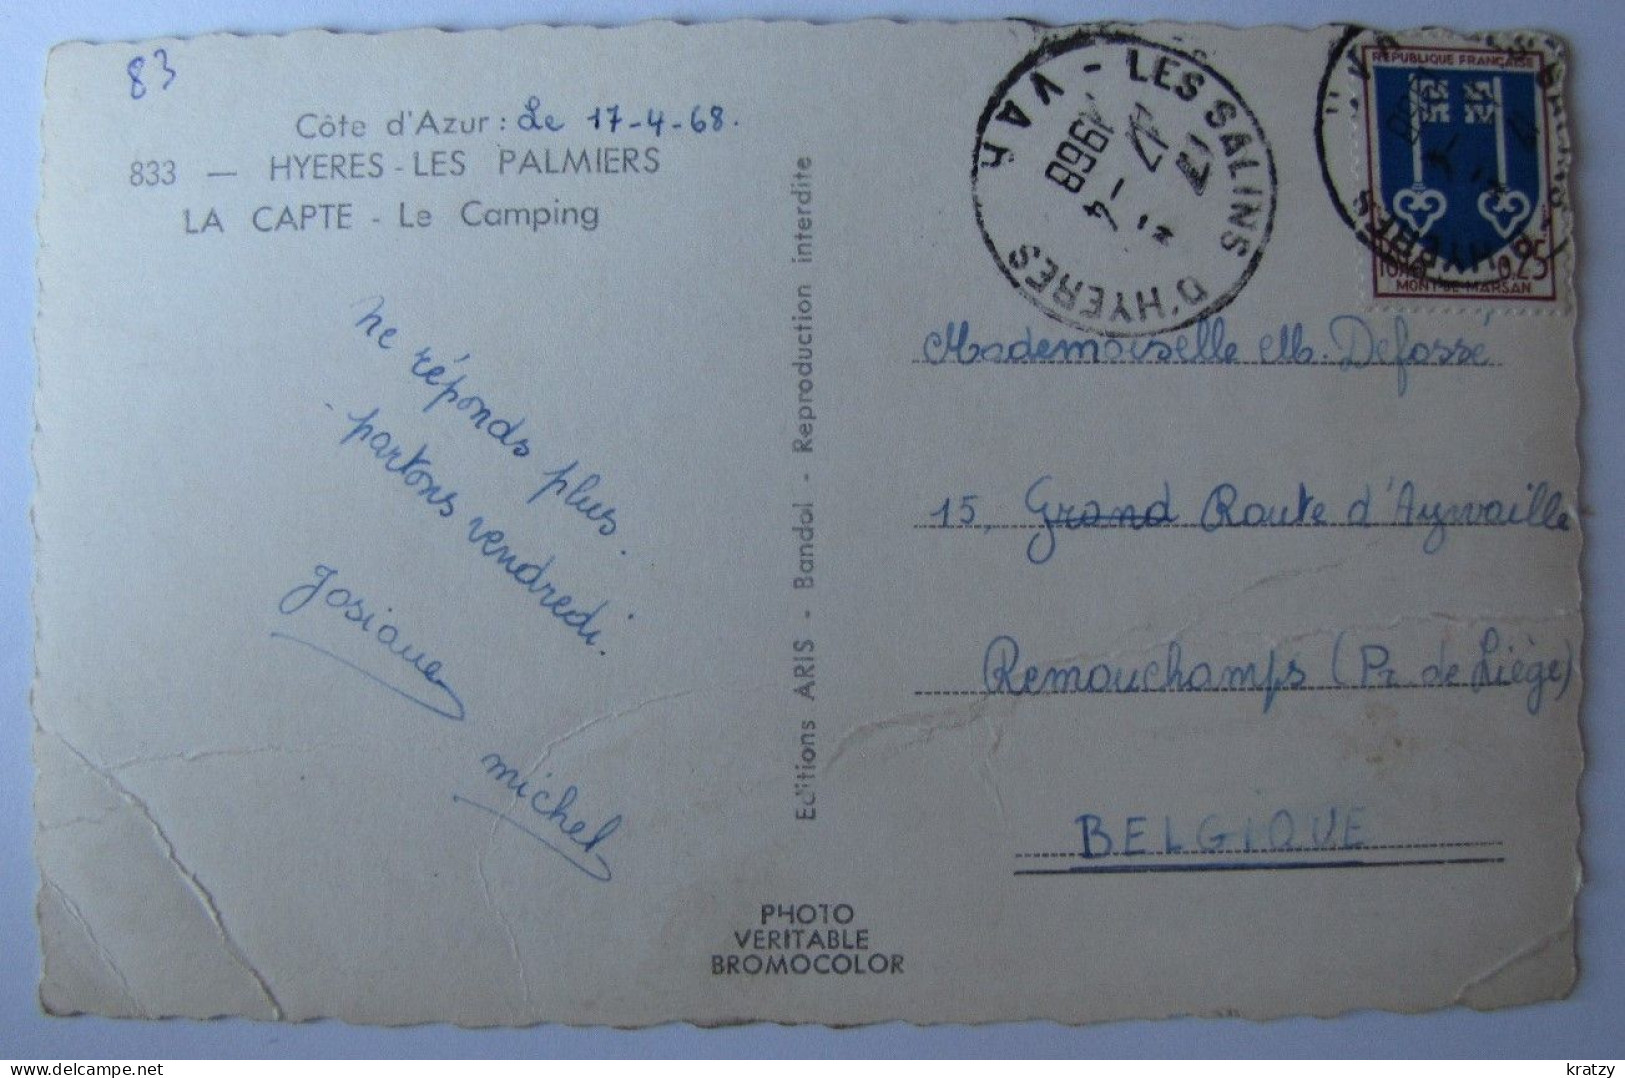 83
Côte d'Azur : Le 17-4-68.
833 — HYERES - LES PALMIERS
LA CAPTE - Le Camping
ne réponds plus.
- partons vendredi.
Josiane
michel
Editions ARIS - Bandol - Reproduction interdite
PHOTO
VERITABLE
BROMOCOLOR
LES SALINS D'HYERES
VAR
17 - 4
1968
REPUBLIQUE FRANÇAISE
0,25
MONT-DE-MARSAN
Mademoiselle M. Defossé
15, Grand Route d'Aywaille
Remouchamps (Pr. de Liège)
BELGIQUE
kratzy